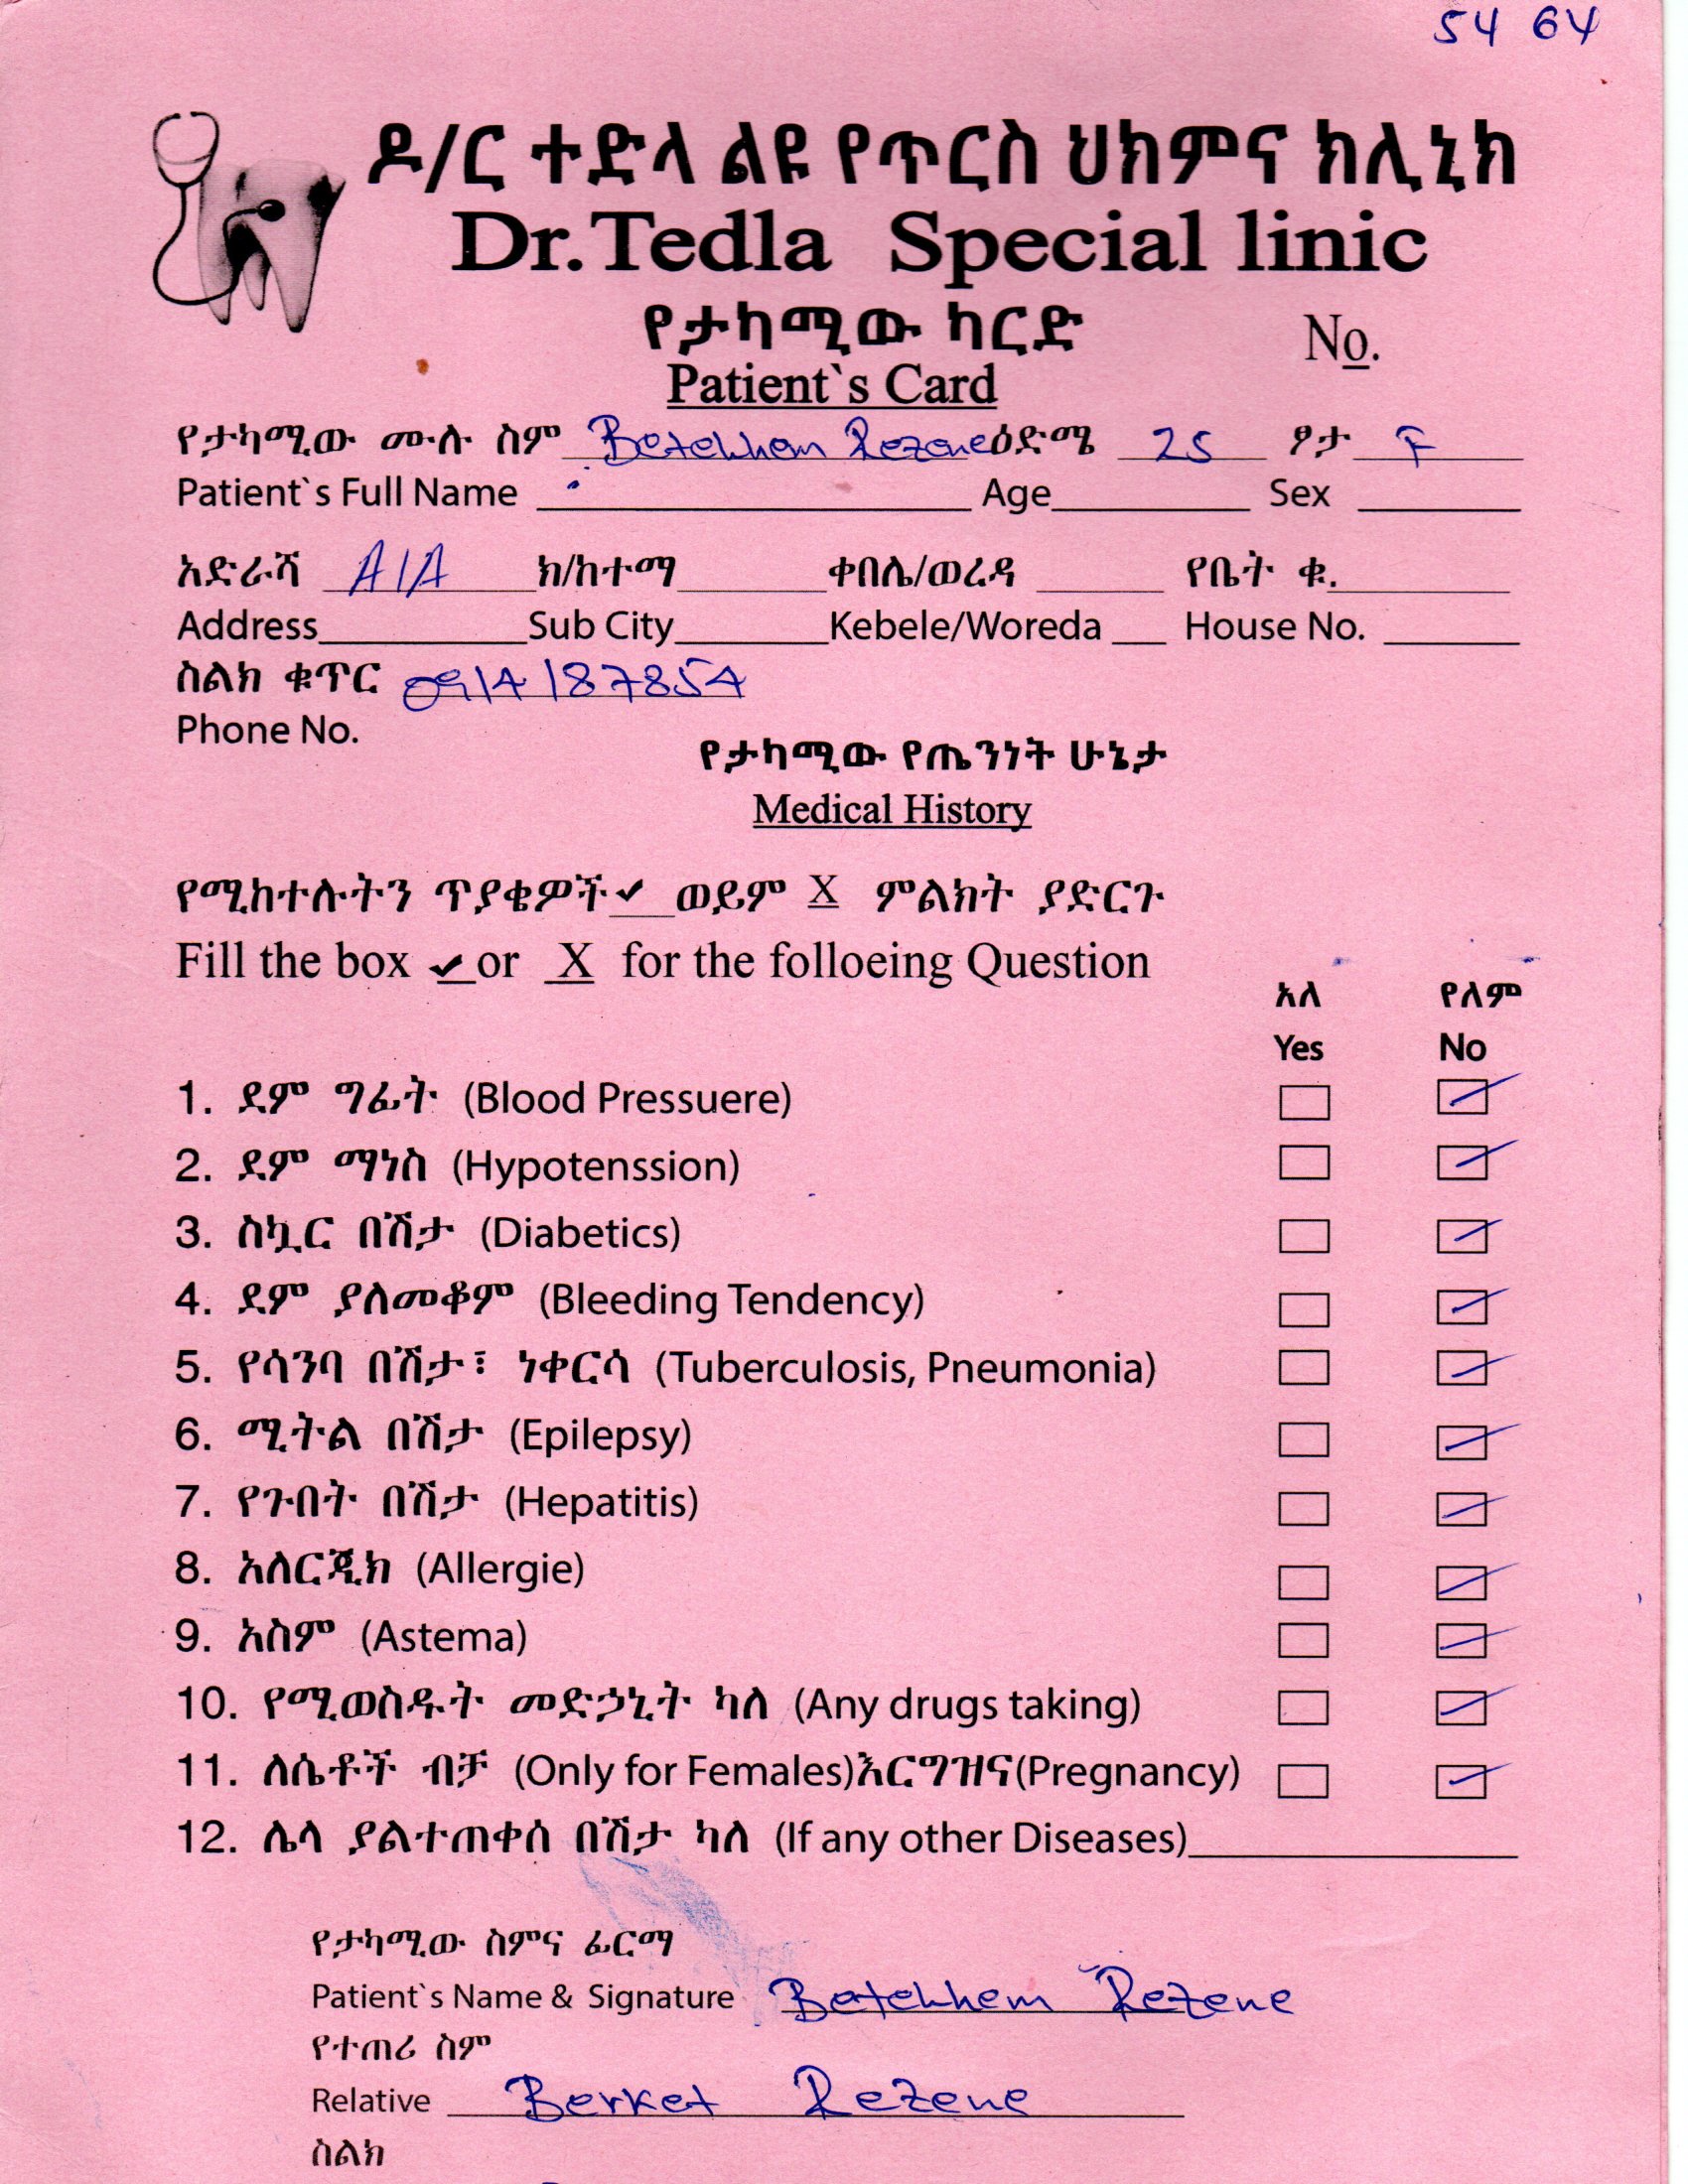 54 64
ዶ/ር ተድላ ልዩ የጥርስ ህክምና ክሊኒክ
Dr.Tedla Special linic
የታካሚው ካርድ
No.
Patient`s Card
የታካሚው ሙሉ ስም Betelhhem Rezene ዕድሜ 25 ፆታ F
Patient`s Full Name Age Sex
አድራሻ A/A ክ/ከተማ ቀበሌ/ወረዳ የቤት ቁ.
Address Sub City Kebele/Woreda House No.
ስልክ ቁጥር 0914187854
Phone No.
የታካሚው የጤንነት ሁኔታ
Medical History
የሚከተሉትን ጥያቄዎች ✔ ወይም X ምልክት ያድርጉ
Fill the box ✔ or X for the folloeing Question
አለ የለም
Yes No
1. ደም ግፊት (Blood Pressuere)
2. ደም ማነስ (Hypotenssion)
3. ስኳር በሽታ (Diabetics)
4. ደም ያለመቆም (Bleeding Tendency)
5. የሳንባ በሽታ፣ ነቀርሳ (Tuberculosis, Pneumonia)
6. ሚትል በሽታ (Epilepsy)
7. የጉበት በሽታ (Hepatitis)
8. አለርጂክ (Allergie)
9. አስም (Astema)
10. የሚወስዱት መድኃኒት ካለ (Any drugs taking)
11. ለሴቶች ብቻ (Only for Females)እርግዝና(Pregnancy)
12. ሌላ ያልተጠቀሰ በሽታ ካለ (If any other Diseases)
የታካሚው ስምና ፊርማ
Patient`s Name & Signature Betelhhem Rezene
የተጠሪ ስም
Relative Berket Rezene
ስልክ